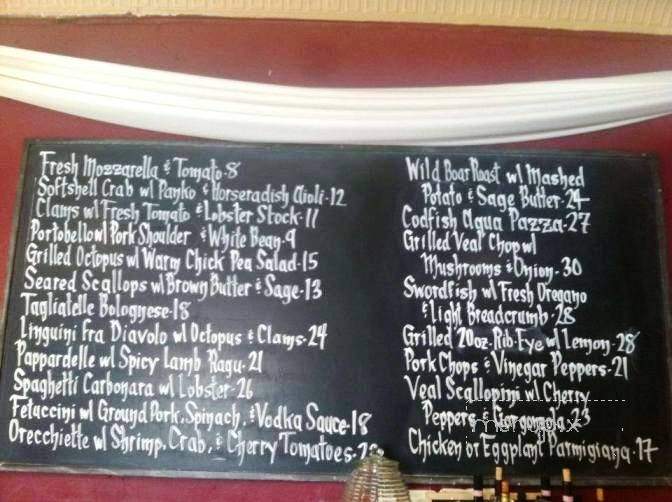 Fresh Mozzarella & Tomato-8
Softshell Crab w/ Panko & Horseradish Aioli-12
Clams w/ Fresh Tomato & Lobster Stock-11
Portobello w/ Pork Shoulder & White Bean-9
Grilled Octopus w/ Warm Chick Pea Salad-15
Seared Scallops w/ Brown Butter & Sage-13
Tagliatelle Bolognese-18
Linguini Fra Diavolo w/ Octopus & Clams-24
Pappardelle w/ Spicy Lamb Ragu-21
Spaghetti Carbonara w/ Lobster-26
Fetuccini w/ Ground Pork, Spinach, & Vodka Sauce-18
Orecchiette w/ Shrimp, Crab, & Cherry Tomatoes-
Wild Boar Roast w/ Mashed
Potato & Sage Butter-24
Codfish Aqua Pazza-27
Grilled Veal Chop w/
Mushrooms & Onion-30
Swordfish w/ Fresh Oregano
& Light Breadcrumb-28
Grilled 20oz. Rib-Eye w/ Lemon-28
Pork Chops & Vinegar Peppers-21
Veal Scallopini w/ Cherry
Peppers & Gorgonzola-23
Chicken or Eggplant Parmigiana-17